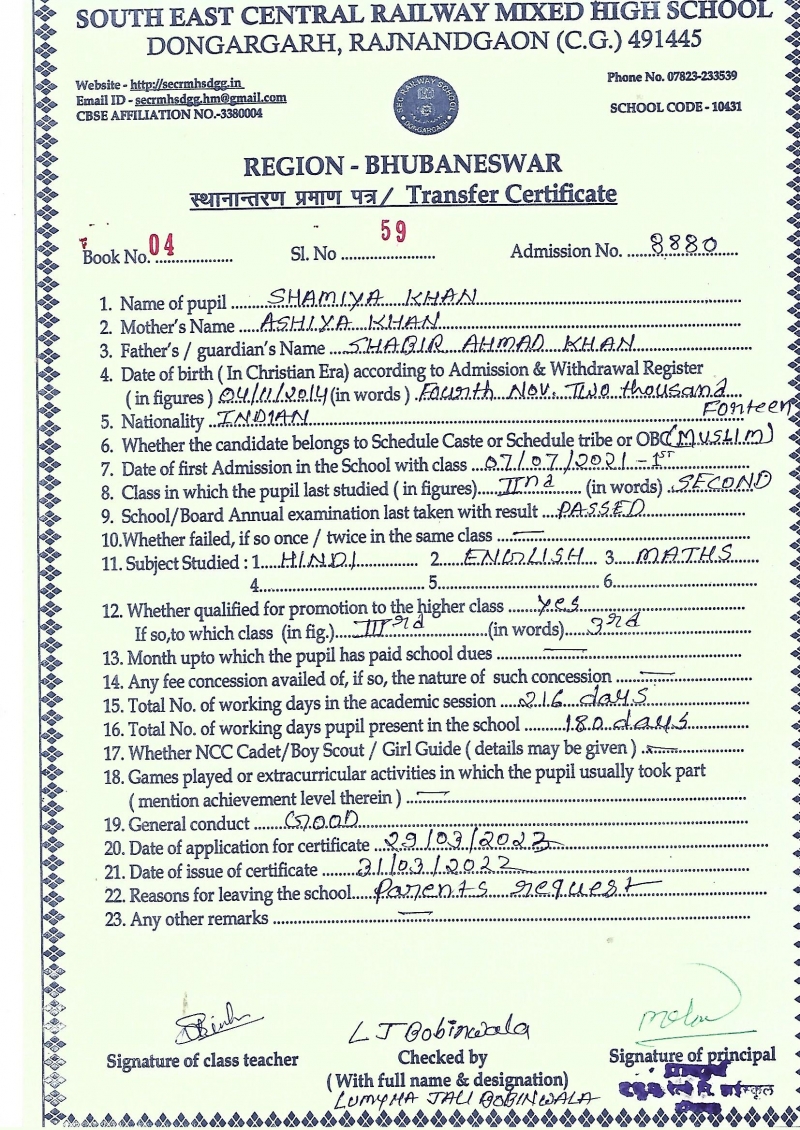 SOUTH EAST CENTRAL RAILWAY MIXED HIGH SCHOOL
DONGARGARH, RAJNANDGAON (C.G.) 491445
Website - http://secrmhsdgg.in
Email ID - secrmhsdgg.hm@gmail.com
CBSE AFFILIATION NO.-3380004
SEC RAILWAY SCHOOL
DONGARGARH
Phone No. 07823-233539
SCHOOL CODE - 10431
REGION - BHUBANESWAR
स्थानान्तरण प्रमाण पत्र / Transfer Certificate
Book No. 04 Sl. No 59 Admission No. 8880
1. Name of pupil SHAMIYA KHAN
2. Mother's Name ASHIYA KHAN
3. Father's / guardian's Name SHABIR AHMAD KHAN
4. Date of birth ( In Christian Era) according to Admission & Withdrawal Register
( in figures ) 04/11/2014 (in words ) Fourth Nov. Two thousand
Fonteen
5. Nationality INDIAN
6. Whether the candidate belongs to Schedule Caste or Schedule tribe or OBC (MUSLIM)
7. Date of first Admission in the School with class 07/07/2021 - 1ST
8. Class in which the pupil last studied ( in figures) IInd (in words) SECOND
9. School/Board Annual examination last taken with result PASSED
10.Whether failed, if so once / twice in the same class —
11. Subject Studied : 1. HINDI 2. ENGLISH 3. MATHS
4. 5. 6.
12. Whether qualified for promotion to the higher class yes
If so,to which class (in fig.) IIIrd (in words) 3rd
13. Month upto which the pupil has paid school dues —
14. Any fee concession availed of, if so, the nature of such concession —
15. Total No. of working days in the academic session 216 days
16. Total No. of working days pupil present in the school 180 days
17. Whether NCC Cadet/Boy Scout / Girl Guide ( details may be given ) —
18. Games played or extracurricular activities in which the pupil usually took part
( mention achievement level therein ) —
19. General conduct GOOD
20. Date of application for certificate 29/03/2023
21. Date of issue of certificate 31/03/2022
22. Reasons for leaving the school Parents request
23. Any other remarks —
L J Bobinwala
Signature of class teacher Checked by Signature of principal
(With full name & designation)
LUMYMA JALI BOBINWALA